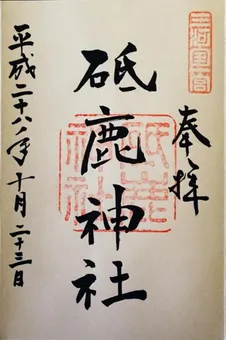 三河国一宮
奉拝
砥鹿神社
砥鹿神社
平成二十八年十月二十三日